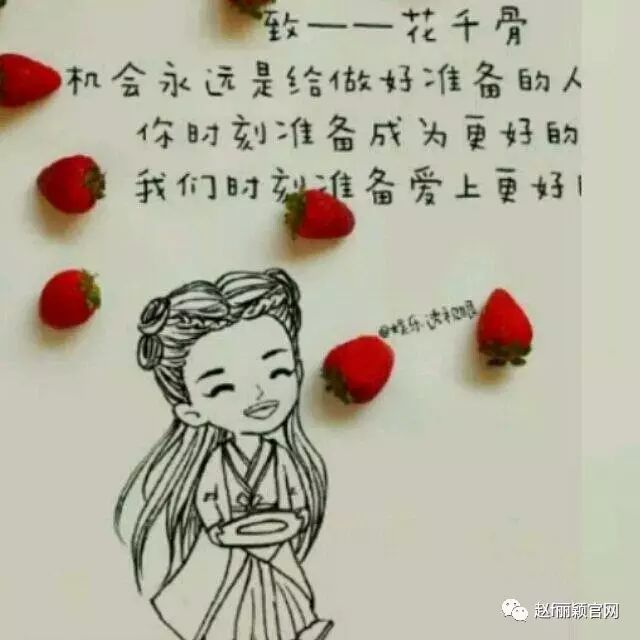 致——花千骨
机会永远是给做好准备的人
你时刻准备成为更好的
我们时刻准备爱上更好的
@娱乐透视眼
赵f丽颖官网